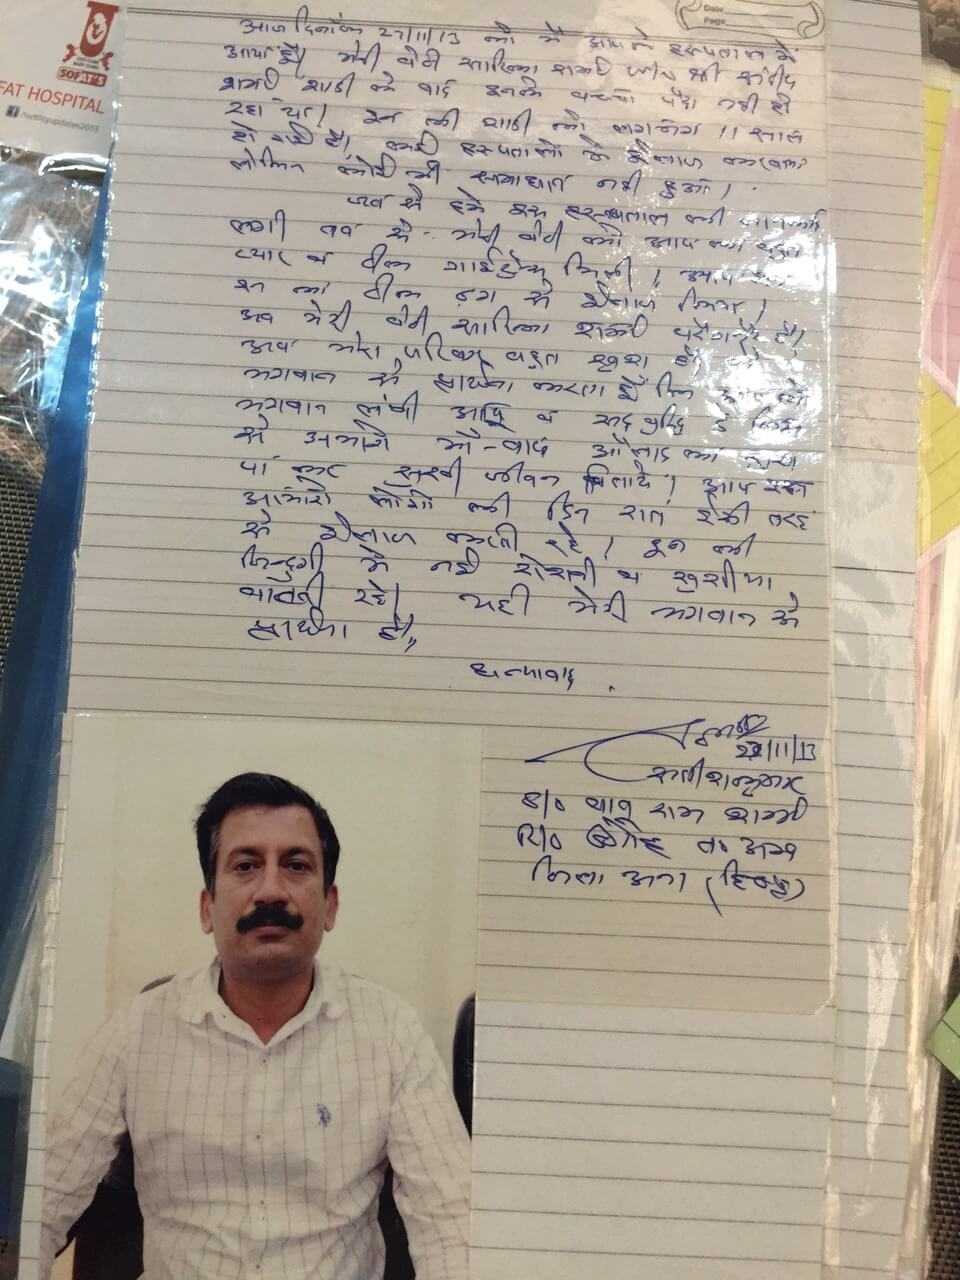 SOFAT'S
FAT HOSPITAL
Date
Page
आज दिनांक 27/11/13 को मैं आपके हस्पताल में
आया हूँ। मेरी बेटी सारिका शर्मा श्री संदीप
शर्मा शादी के बाद इनके बच्चा पैदा नही हो
रहा था। इन की शादी को लगभग 11 साल
हो गये है। कई हस्पतालों में ईलाज करवाया
लेकिन कोई भी समाधान नही हुआ।
जब से हमे इस हस्पताल की जानकारी
लगी तब से मेरी बेटी को आप का बहुत
प्यार व ठीक गाईडेन्स मिली। आप
का ठीक ढंग से ईलाज किया।
अब मेरी बेटी सारिका शर्मा है।
अब मेरा परिवार बहुत खुश है।
भगवान से प्रार्थना करता हूँ कि आप को
भगवान लंबी आयु व सदबुद्धि दे जिस
से अभागे माँ-बाप औलाद का सुख
पा कर सुखी जीवन बिताये। आप
अभागे लोगो की दिन रात ईसी तरह
से ईलाज करती रहे। इन की
जिन्दगी मे नई रोशनी व खुशीया
बांटती रहे। यही मेरी भगवान से
प्रार्थना है।
धन्यवाद.
27/11/13
सतीश कुमार
S/o बाबु राम शर्मा
R/o त० अम्ब
जिला ऊना (हि०प्र०)